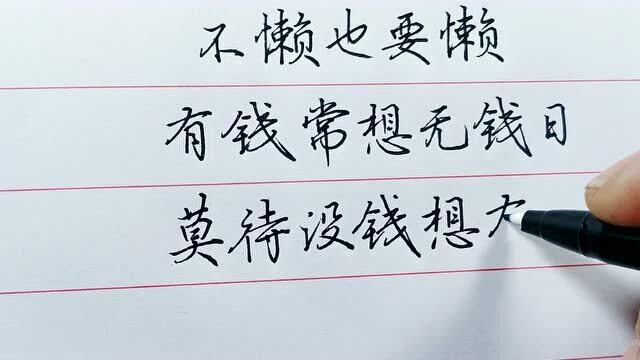 不懒也要懒
有钱常想无钱日
莫待没钱想